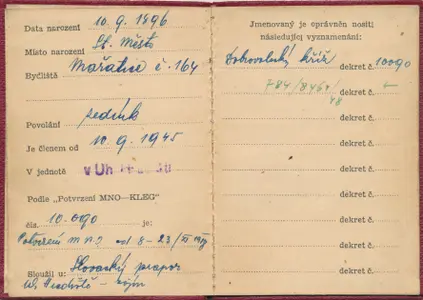 Data narození 10. 9. 1896
Místo narození St. Město
Bydliště Mařatice č. 164
Povolání rolník
Je členem od 10. 9. 1945
V jednotě v Uh.
Podle „Potvrzení MNO—KLEG"
čís. 10.090 je:
Potvrzení MNO od 8 - 23/
Sloužil u: Slovácký prapor
Jmenovaný je oprávněn nositi
následující vyznamenání:
Dobrovolnický kříž dekret č. 10090
784/846/48 dekret č.
dekret č.
dekret č.
dekret č.
dekret č.
dekret č.
dekret č.
dekret č.